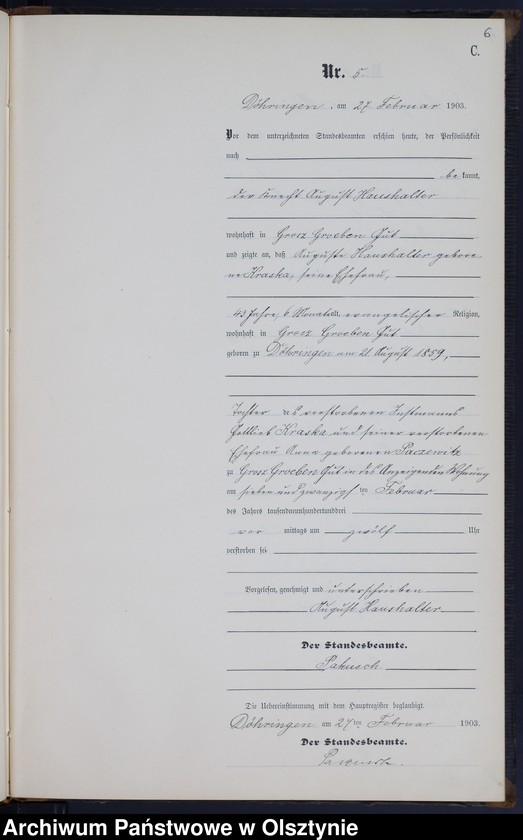 6
C.
Nr. 5
Döhringen, am 27 Februar 1903.
Vor dem unterzeichneten Standesbeamten erschien heute, der Persönlichkeit
nach
be kannt,
der Knecht August Haushalter
wohnhaft in Grosz Groeben Gut
und zeigte an, daß Auguste Haushalter gebore
ne Kraska, seine Ehefrau,
43 Jahre, 6 Monate alt, evangelischer Religion,
wohnhaft in Grosz Groeben Gut
geboren zu Döhringen am 21 August 1859,
Tochter des verstorbenen Instmanns
Gottlieb Kraska und seiner verstorbenen
Ehefrau Anna geborenen
zu Grosz Groeben Gut in des Anzeigenden Wohnung
am sieben und zwanzigsten Februar
des Jahres tausendneunhundertunddrei
vor mittags um zwölf Uhr
verstorben sei.
Vorgelesen, genehmigt und unterschrieben
August Haushalter
Der Standesbeamte.
Die Uebereinstimmung mit dem Hauptregister beglaubigt.
Döhringen am 27ten Februar 1903.
Der Standesbeamte.
Archiwum Państwowe w Olsztynie